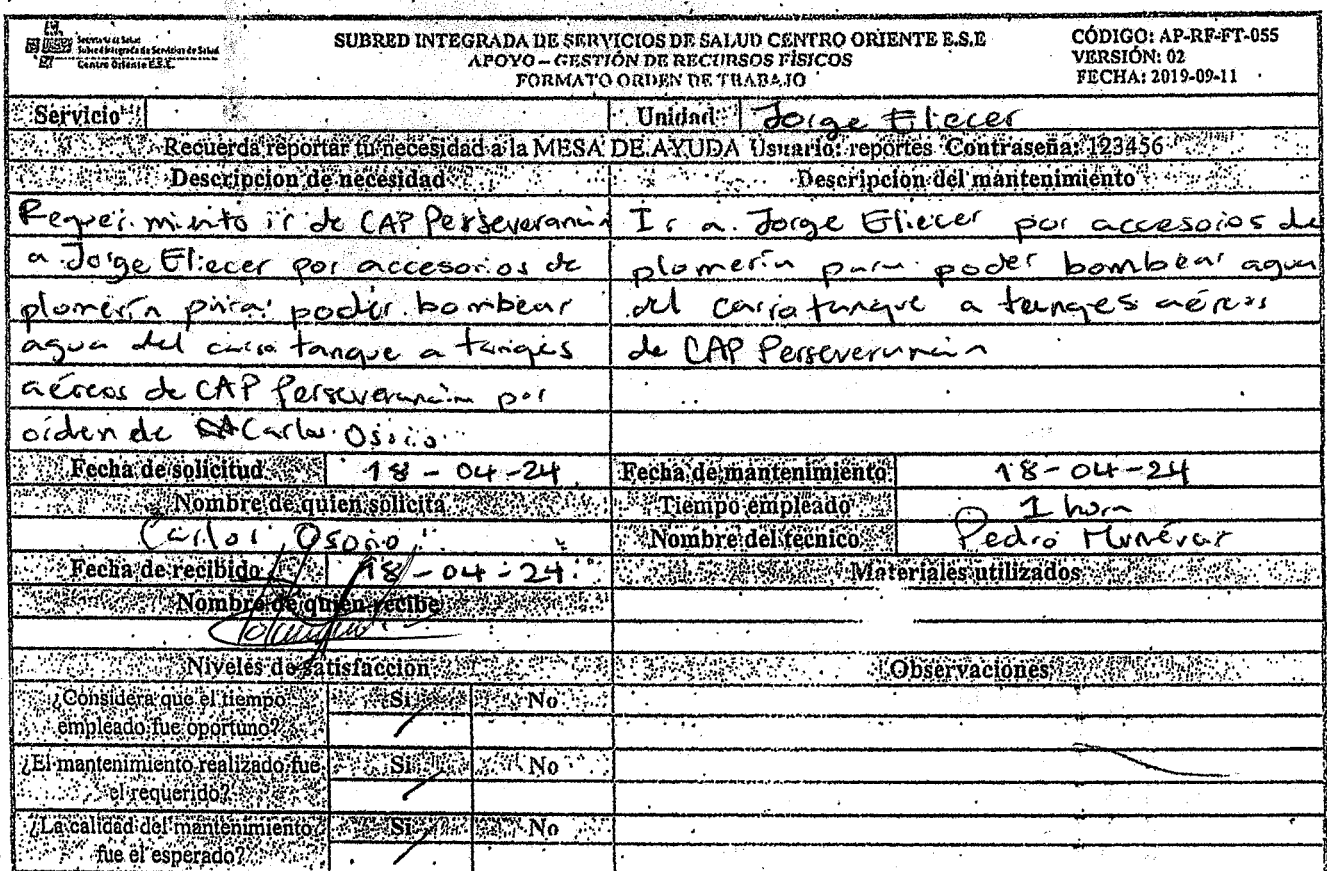 Secretaría de Salud
Subred Integrada de Servicios de Salud
Centro Oriente E.S.E.
SUBRED INTEGRADA DE SERVICIOS DE SALUD CENTRO ORIENTE E.S.E
APOYO – GESTIÓN DE RECURSOS FÍSICOS
FORMATO ORDEN DE TRABAJO
CÓDIGO: AP-RF-FT-055
VERSIÓN: 02
FECHA: 2019-09-11
Servicio
Unidad Jorge Eliecer
Recuerda reportar tu necesidad a la MESA DE AYUDA Usuario: reportes Contraseña: 123456
Descripcion de necesidad
Requerimiento ir de CAP Perseverancia
a Jorge Eliecer por accesorios de
plomería para poder bombear
agua del carro tanque a tanques
aéreos de CAP Perseverancia por
orden de Carlos Osorio
Descripcion del mantenimiento
Ir a Jorge Eliecer por accesorios de
plomería para poder bombear agua
del carrotanque a tanques aéreos
de CAP Perseverancia
Fecha de solicitud 18-04-24
Fecha de mantenimiento 18-04-24
Nombre de quien solicita
Carlos Osorio
Tiempo empleado 1 hora
Nombre del técnico Pedro Munévar
Fecha de recibido 18-04-24
Materiales utilizados
Nombre de quien recibe
Niveles de satisfacción
Observaciones
¿Considera que el tiempo
empleado fue oportuno?
Si No
¿El mantenimiento realizado fue
el requerido?
Si No
¿La calidad del mantenimiento
fue el esperado?
Si No